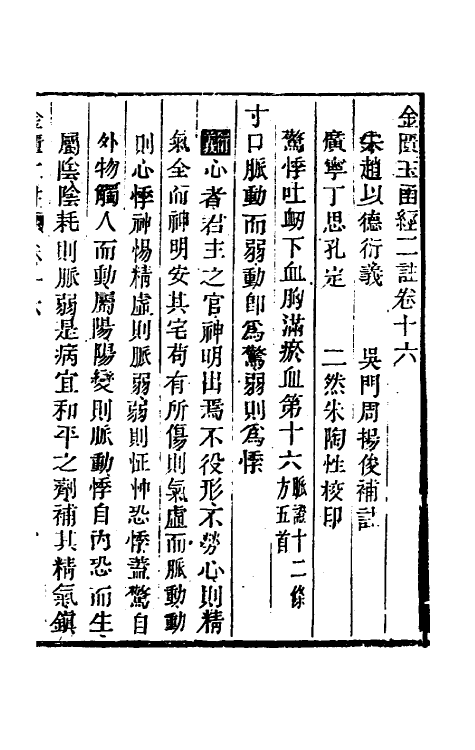 金匱玉函經二註卷十六
宋趙以德衍義　吳門周揚俊補註
廣寧丁思孔定　二然朱陶性校印
驚悸吐衂下血胸滿瘀血第十六脈證十二條方五首
寸口脈動而弱動卽爲驚弱則爲悸
衍義心者君主之官神明出焉不役形不勞心則精
氣全而神明安其宅苟有所傷則氣虛而脈動動
則心悸神惕精虛則脈弱弱則怔忡恐悸蓋驚自
外物觸入而動屬陽陽變則脈動悸自內恐而生
屬陰陰耗則脈弱是病宜和平之劑補其精氣鎮